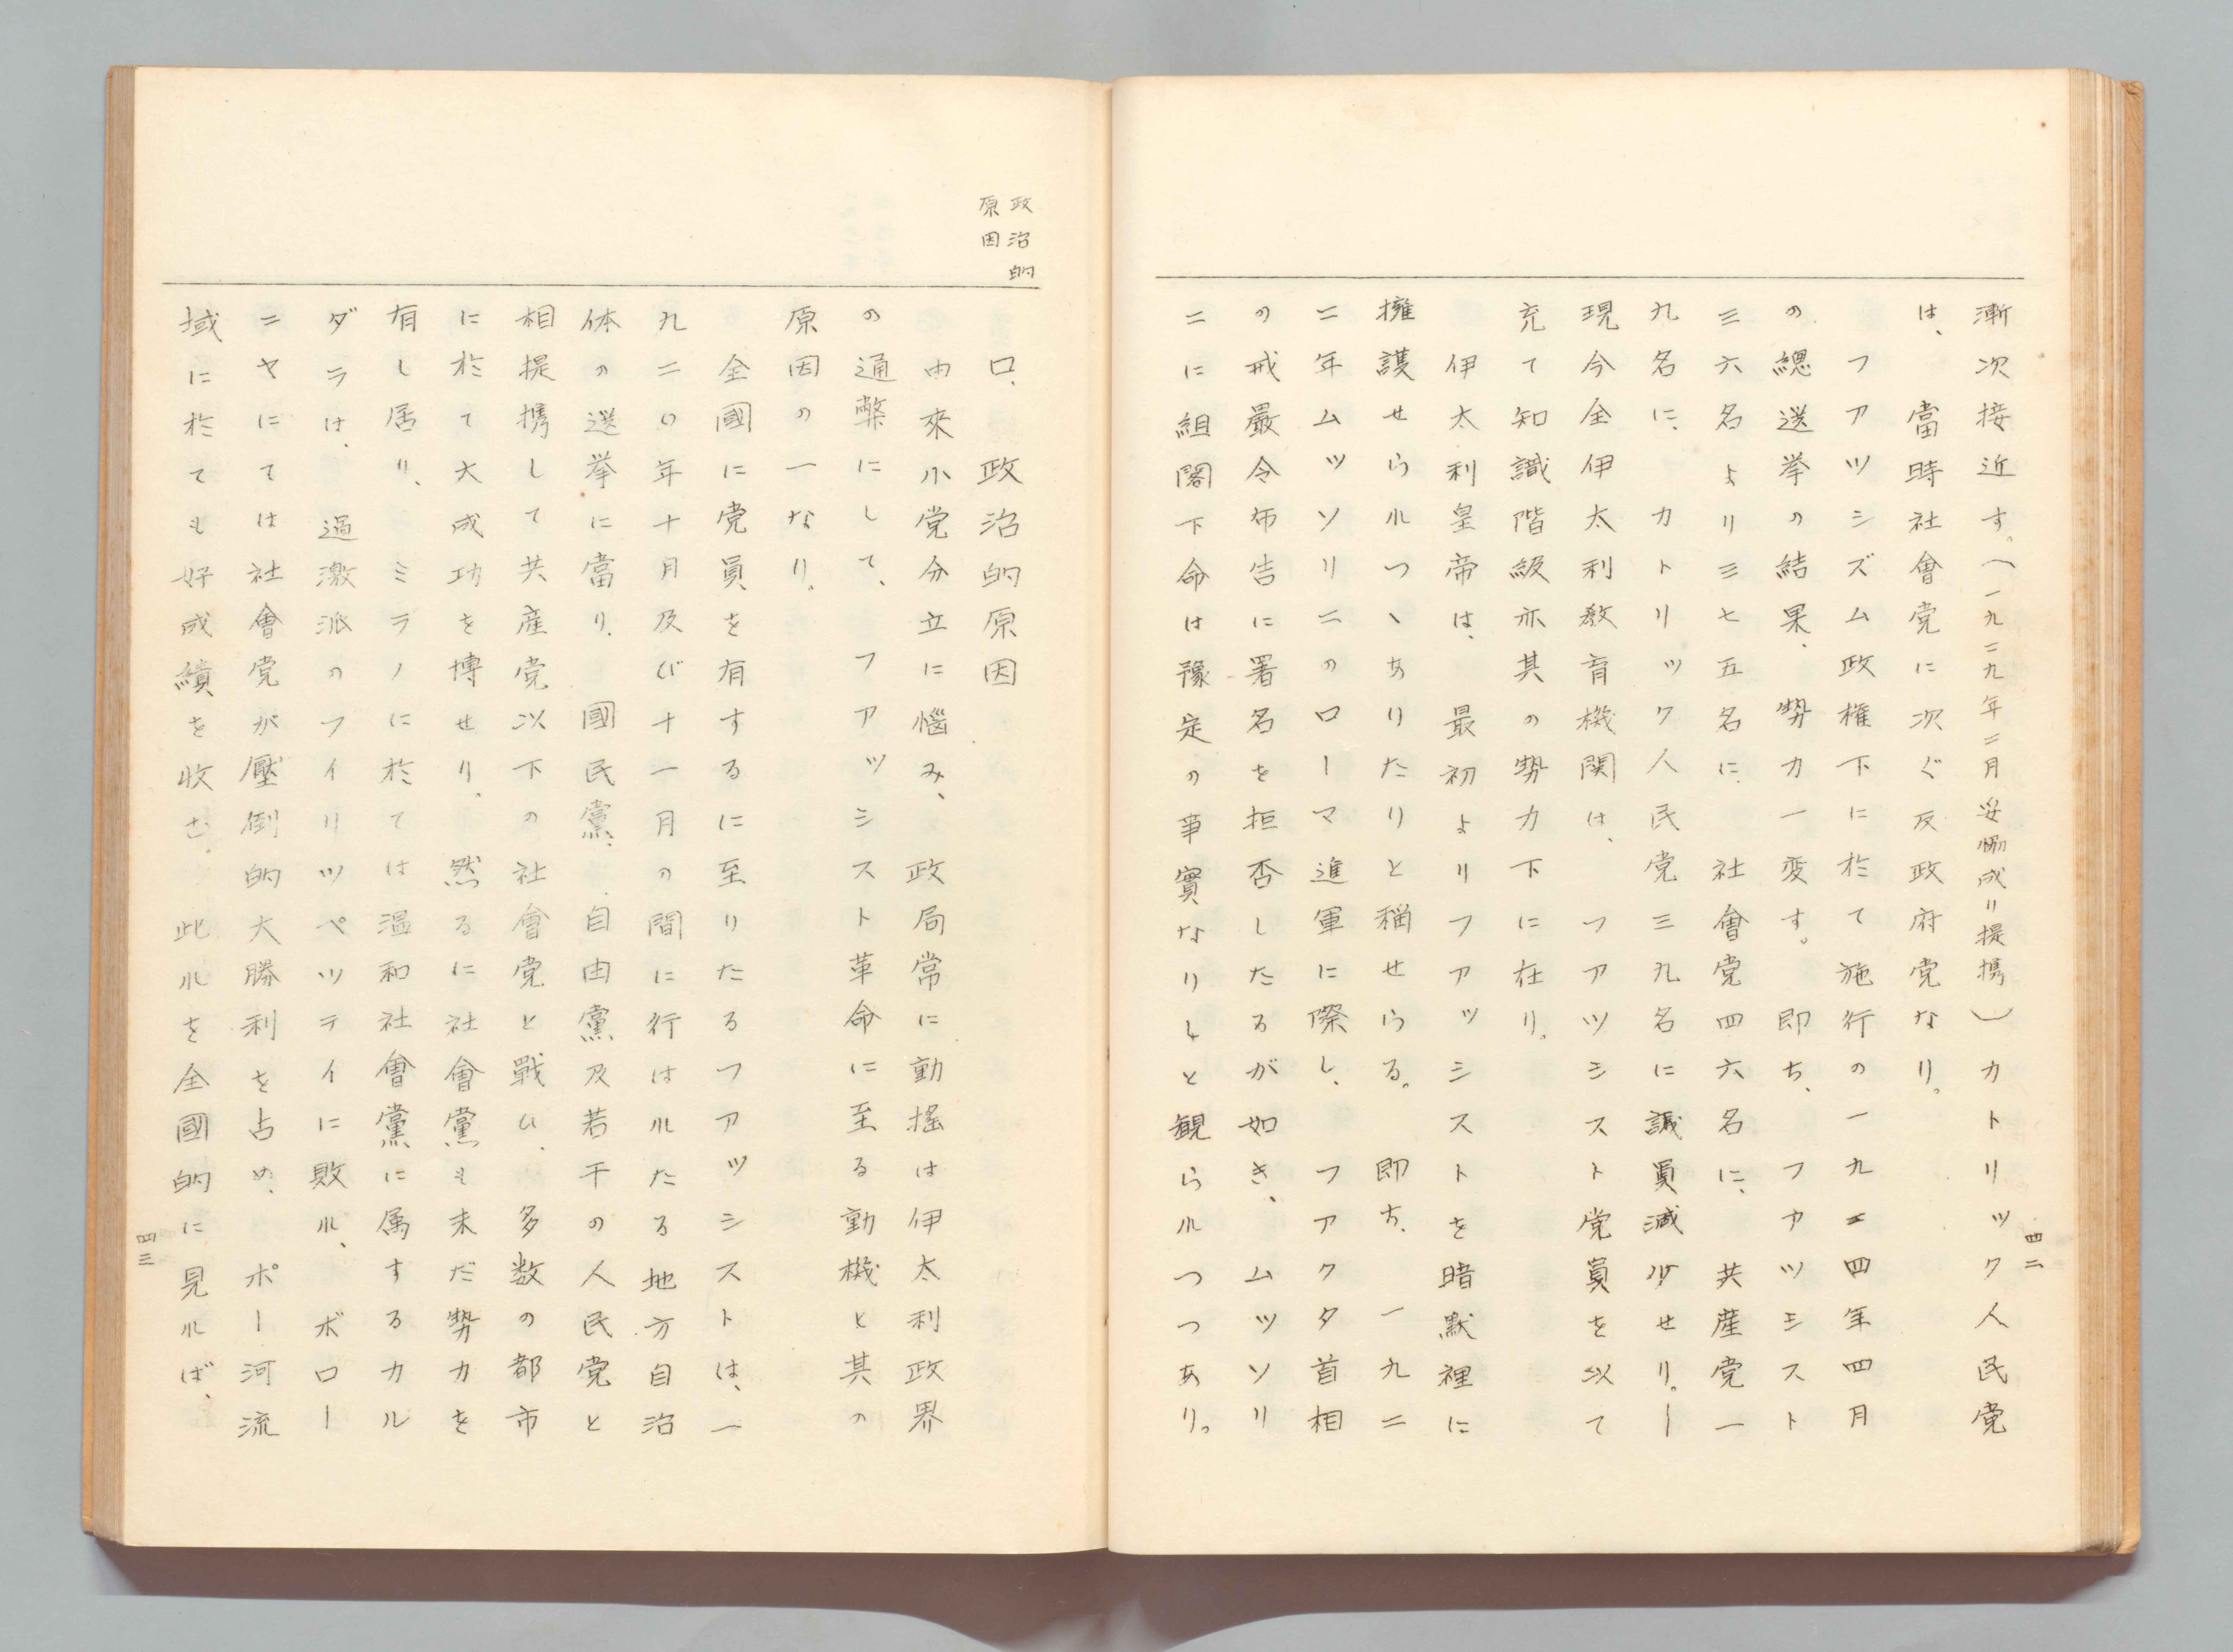 四二
漸次接近す。(一九二九年二月妥協成り提携)カトリック人民党
は、當時社會党に次ぐ反政府党なり。
フアツシズム政権下に於て施行の一九二四年四月
の總選挙の結果、勢力一変す。即ち、フアツシスト
三六名より三七五名に、社會党四六名に、共産党一
九名に、カトリック人民党三九名に議員減少せり。ー
現今全伊太利教育機関は、フアツシスト党員を以て
充て知識階級亦其の勢力下に在り。
伊太利皇帝は、最初よりフアッシストを暗黙裡に
擁護せられつヽありたりと稱せらる。即ち、一九二
二年ムツソリニのローマ進軍に際し、フアクタ首相
の戒嚴令布告に署名を拒否したるが如き、ムッソリ
ニに組閣下命は豫定の事實なりしと観られつつあり。
政治的
原因
ロ、政治的原因
由來小党分立に惱み、政局常に動搖は伊太利政界
の通弊にして、フアッシスト革命に至る動機と其の
原因の一なり。
全國に党員を有するに至りたるフアッシストは、一
九二〇年十月及び十一月の間に行はれたる地方自治
体の選挙に當り、國民黨、自由黨及若干の人民党と
相提携して共産党以下の社會党と戰ひ、多数の都市
に於て大成功を博せり、然るに社會黨も未だ勢力を
有し居り、ミラノに於ては温和社會黨に属するカル
ダラは、過激派のフイリツペツテイに敗れ、ボロー
ニヤにては社會党が壓倒的大勝利を占め、ポー河流
域に於ても好成績を收む。此れを全國的に見れば、
四三